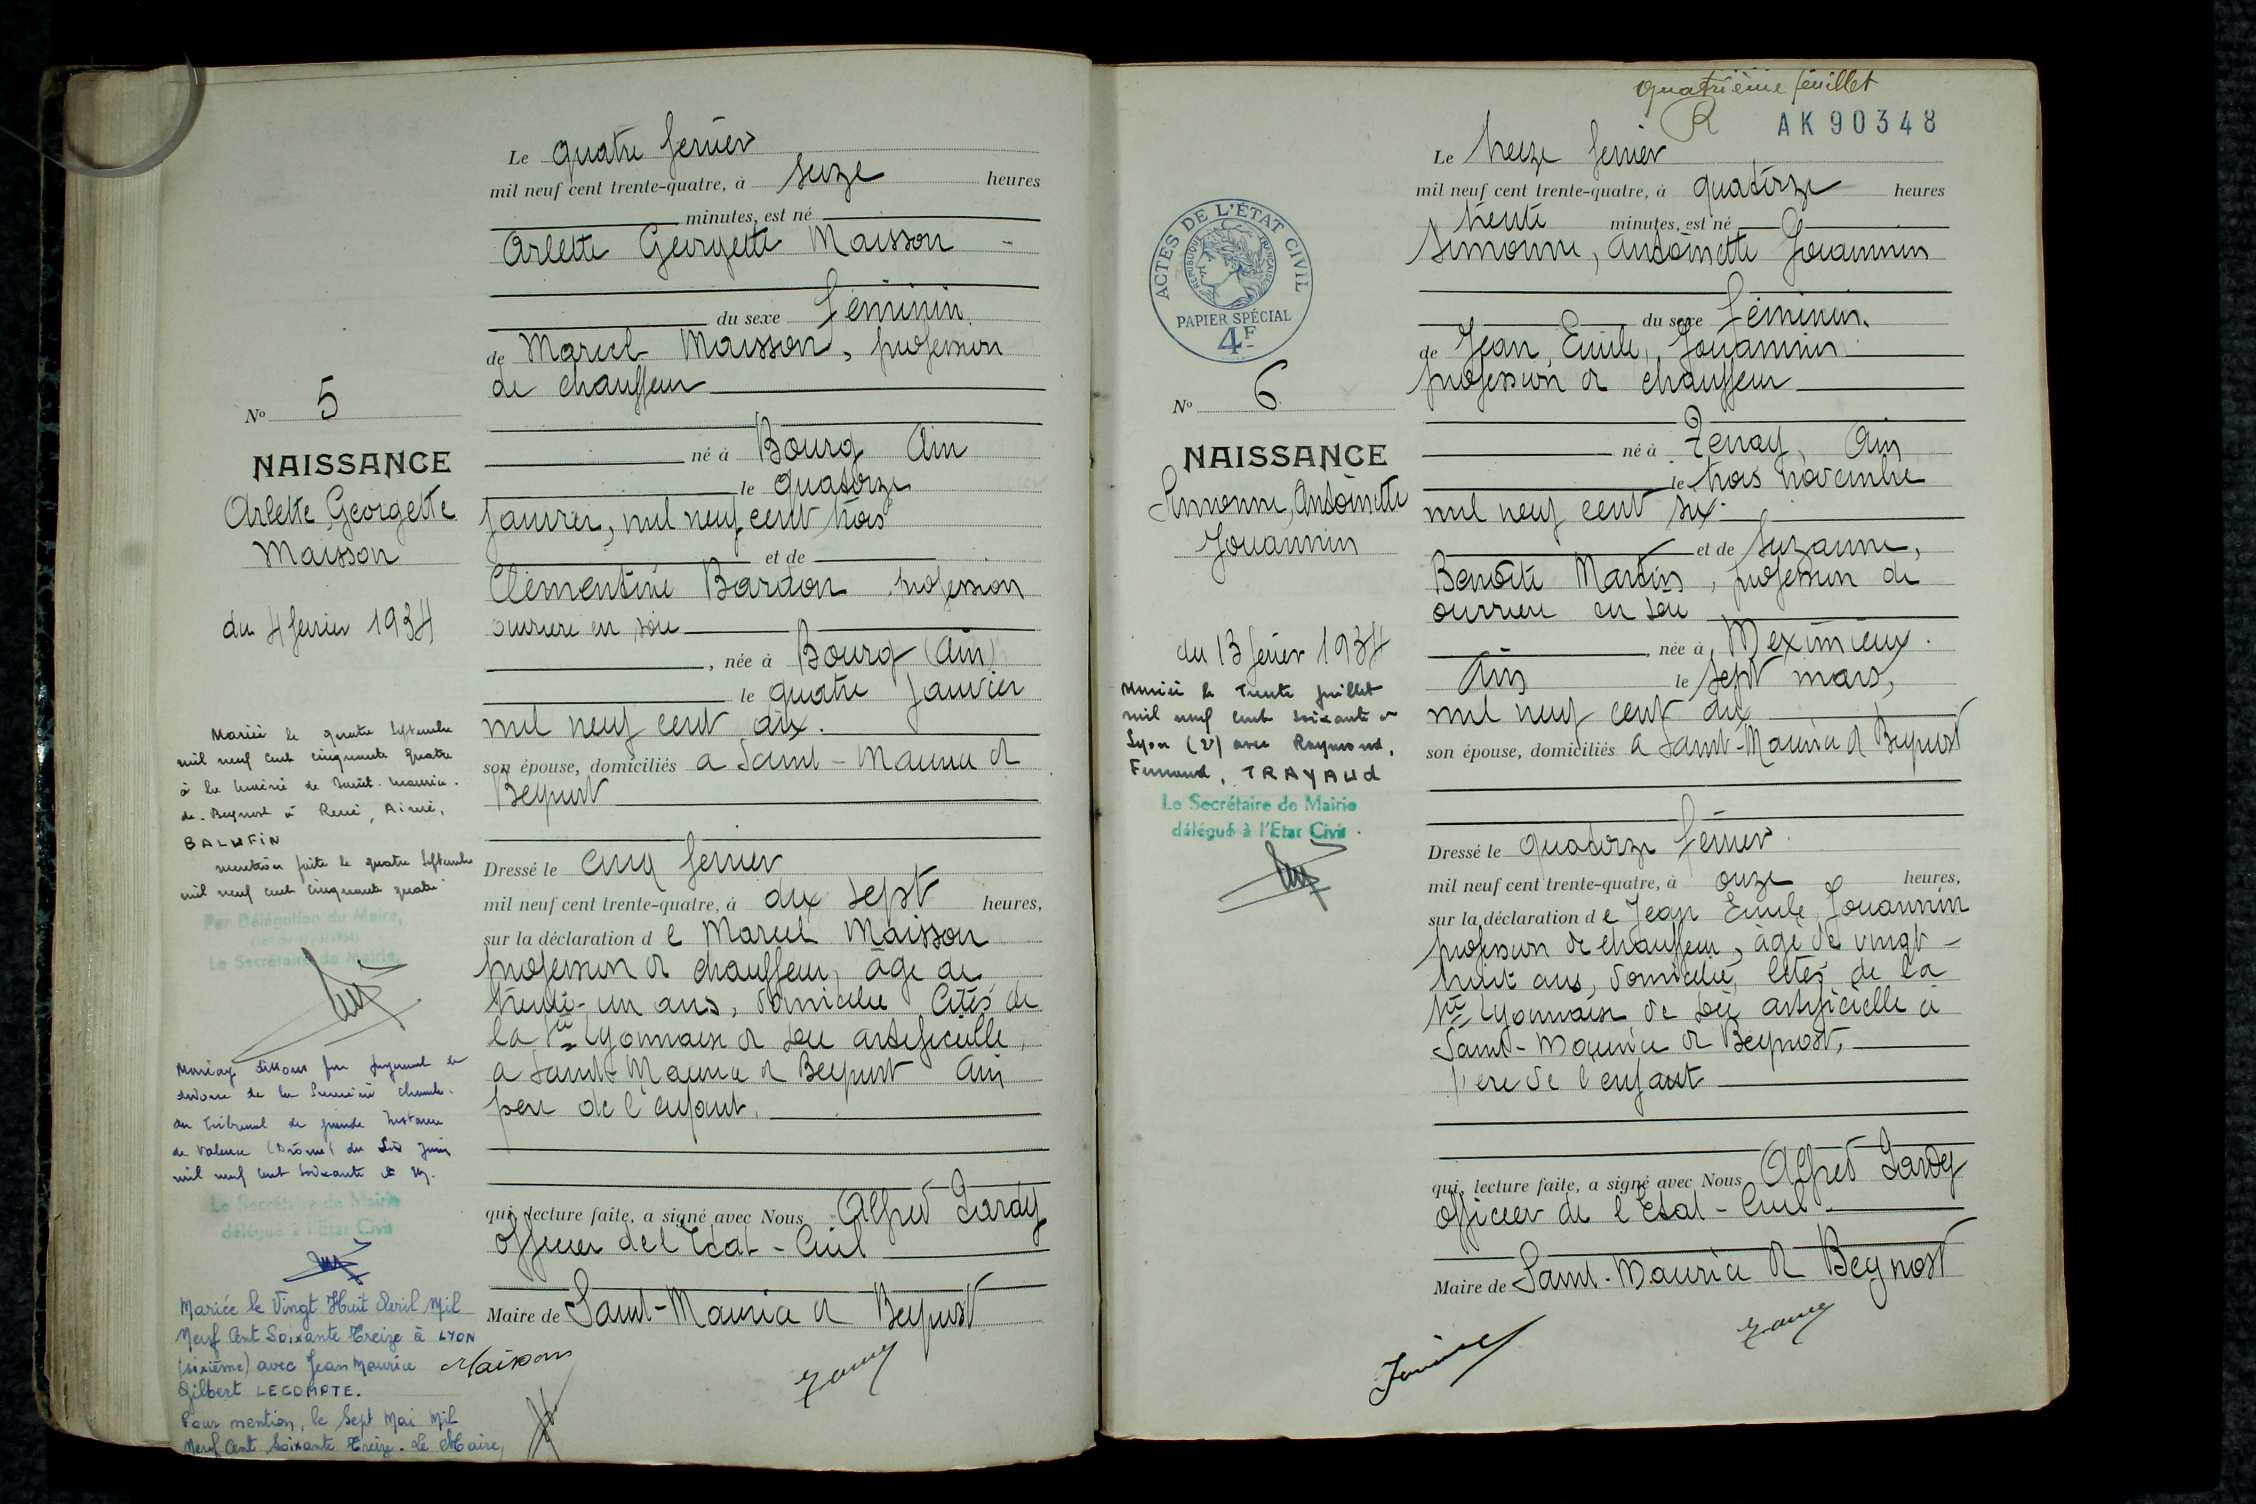 Le quatre fevrier
mil neuf cent trente-quatre, à seize heures
minutes, est né
Arlette Georgette Maisson
du sexe féminin
de Marcel Maisson, profession
de chauffeur
né à Bourg Ain
le quatorze
janvier, mil neuf cent trois
et de
Clementine Bardon profession
ouvriere en soie
, née à Bourg (Ain)
le quatre janvier
mil neuf cent dix.
son épouse, domiciliés a Saint-Maurice de
Beynost
Dressé le cinq fevrier
mil neuf cent trente-quatre, à dix sept heures,
sur la déclaration de Marcel Maisson
profession de chauffeur, âgé de
trente-un ans, domicilié Cités de
la Sté Lyonnaise de soie artificielle,
a Saint-Maurice de Beynost Ain
pere de l'enfant.
qui, lecture faite, a signé avec Nous Alfred Lardy
Officier de l'Etat-Civil
Maire de Saint-Maurice de Beynost
Maisson
No 5
NAISSANCE
Arlette Georgette
Maisson
du 4 fevrier 1934
Mariée le quatre septembre
mil neuf cent cinquante quatre
à la Mairie de Saint-Maurice-
de-Beynost à René, Aimé,
BALUFIN
mention faite le quatre septembre
mil neuf cent cinquante quatre
Par Délégation du Maire,
Le Secrétaire de Mairie,
Mariage dissous par jugement de
divorce de la Première chambre
du Tribunal de grande Instance
de Valence (Drôme) du juin
mil neuf cent soixante et
Le Secrétaire de Mairie
délégué à l'Etat Civil
Mariée le Vingt Huit Avril Mil
Neuf Cent Soixante Treize à LYON
(sixième) avec Jean Maurice
Gilbert LECOMPTE.
Pour mention, le Sept Mai Mil
Neuf Cent Soixante Treize. Le Maire,
quatrième feuillet
AK90348
Le treize fevrier
mil neuf cent trente-quatre, à quatorze heures
trente minutes, est né
Simonne, Antoinette Jouannin
du sexe féminin.
de Jean, Emile, Jouannin
profession de chauffeur
né à Tenay, Ain
le trois novembre
mil neuf cent six.
et de Suzanne,
Benoîte Martin, profession de
ouvriere en soie
, née à Meximieux.
Ain le sept mars,
mil neuf cent dix
son épouse, domiciliés a Saint-Maurice de Beynost
Dressé le quatorze février
mil neuf cent trente-quatre, à onze heures,
sur la déclaration de Jean Emile Jouannin
profession de chauffeur, âgé de vingt-
huit ans, domicilié, cités de la
Sté Lyonnaise de soie artificielle à
Saint-Maurice de Beynost,
père de l'enfant
qui, lecture faite, a signé avec Nous Alfred Lardy
Officier de l'Etat-Civil
Maire de Saint-Maurice de Beynost
ACTES DE L'ÉTAT CIVIL
RÉPUBLIQUE FRANÇAISE
PAPIER SPÉCIAL
4F
No 6
NAISSANCE
Simonne, Antoinette
Jouannin
du 13 février 1934
Mariée le Trente juillet
mil neuf cent soixante à
Lyon (2e) avec Raymond,
Fernand, TRAYAUd
Le Secrétaire de Mairie
délégué à l'Etat Civil